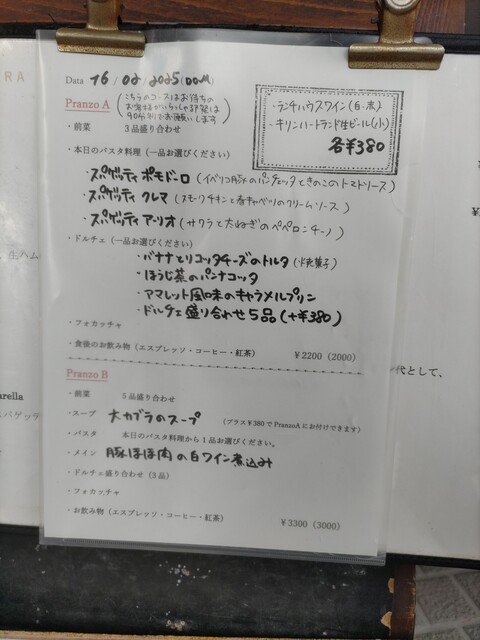 RA
Data 16 / 02 / 2025 (DOM)
Pranzo A
こちらのコースはお待ちの
お客様がいらっしゃる時は
90分制でお願いします
・ランチハウスワイン(白・赤)
・キリンハートランド生ビール(小)
各¥380
・前菜 3品盛り合わせ
・本日のパスタ料理(一品お選びください)
・スパゲッティ ポモドーロ (イベリコ豚のパンチェッタときのこのトマトソース)
・スパゲッティ クレマ (スモークチキンと春キャベツのクリームソース)
・スパゲッティ アーリオ (サワラと大ねぎのペペロンチーノ)
・ドルチェ(一品お選びください)
・バナナとリコッタチーズのトルタ(焼菓子)
・ほうじ茶のパンナコッタ
・アマレット風味のキャラメルプリン
・ドルチェ盛り合わせ5品(+¥380)
・フォカッチャ
・食後のお飲み物(エスプレッソ・コーヒー・紅茶) ¥2200(2000)
Pranzo B
・前菜 5品盛り合わせ
・スープ 大カブラのスープ (プラス¥380でPranzoAにお付けできます)
・パスタ 本日のパスタ料理から1品お選びください。
・メイン 豚ほほ肉の白ワイン煮込み
・ドルチェ盛り合わせ(3品)
・フォカッチャ
・お飲み物(エスプレッソ・コーヒー・紅茶) ¥3300(3000)
生ハム
arella
スパゲッテ
代として、